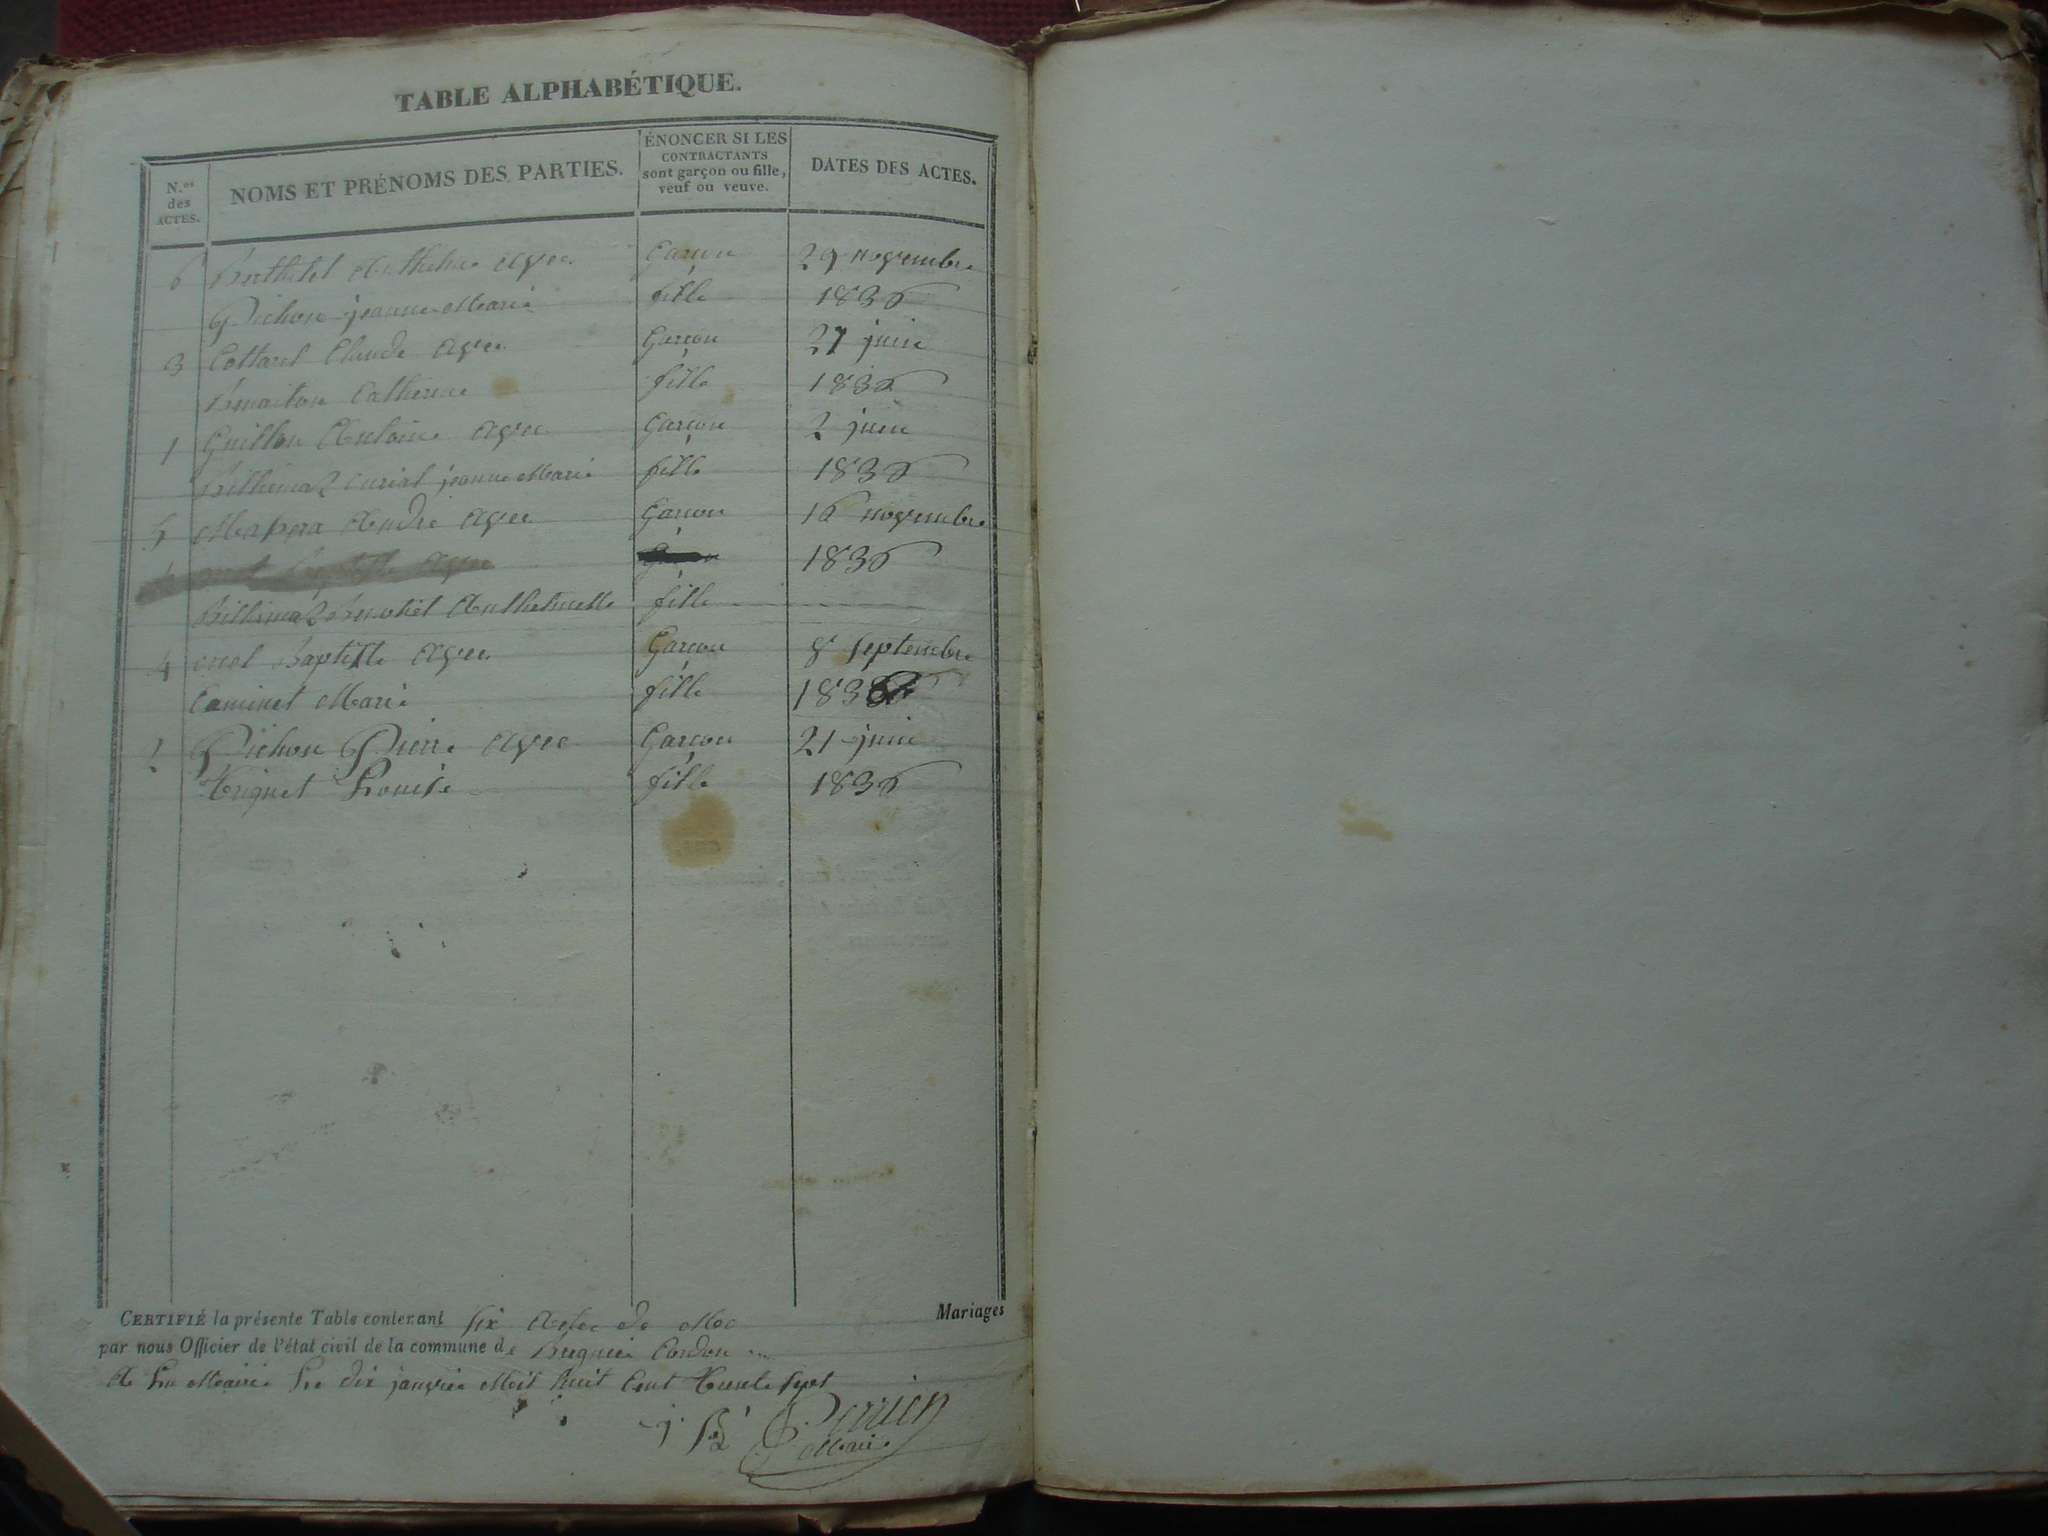 TABLE ALPHABÉTIQUE.
N.os des ACTES.
NOMS ET PRÉNOMS DES PARTIES.
ÉNONCER SI LES CONTRACTANTS sont garçon ou fille, veuf ou veuve.
DATES DES ACTES.
6 Berthelet Anthelme avec Garçon 29 novembre
Pichon jeanne Marie fille 1836
3 Cottarel Claude avec Garçon 27 juin
Catherine fille 1836
1 Guillon Antoine avec Garçon 2 juin
jeanne Marie fille 1836
5 André avec Garçon 16 novembre
1836
Anthelmette fille
4 Baptiste avec Garçon 8 septembre
Caminet Marie fille 1836
2 Pichon Pierre avec Garçon 21 juin
Louise fille 1836
CERTIFIÉ la présente Table contenant six Actes de Mariages
par nous Officier de l'état civil de la commune de Bregnier Cordon
A La Mairie Le dix janvier Mil huit Cent Trente sept
Maire